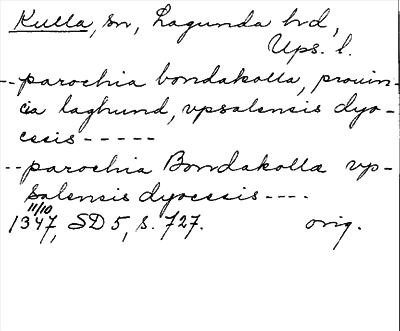 Kulla, sn, Lagunda hd,
Ups. l.
--parochia bondakolla, prouin-
cia laghund, vpsalensis dyo-
cesis-----
--parochia Bondakolla vp-
salensis dyocesis----
11/10
1347, SD 5, s. 727. orig.